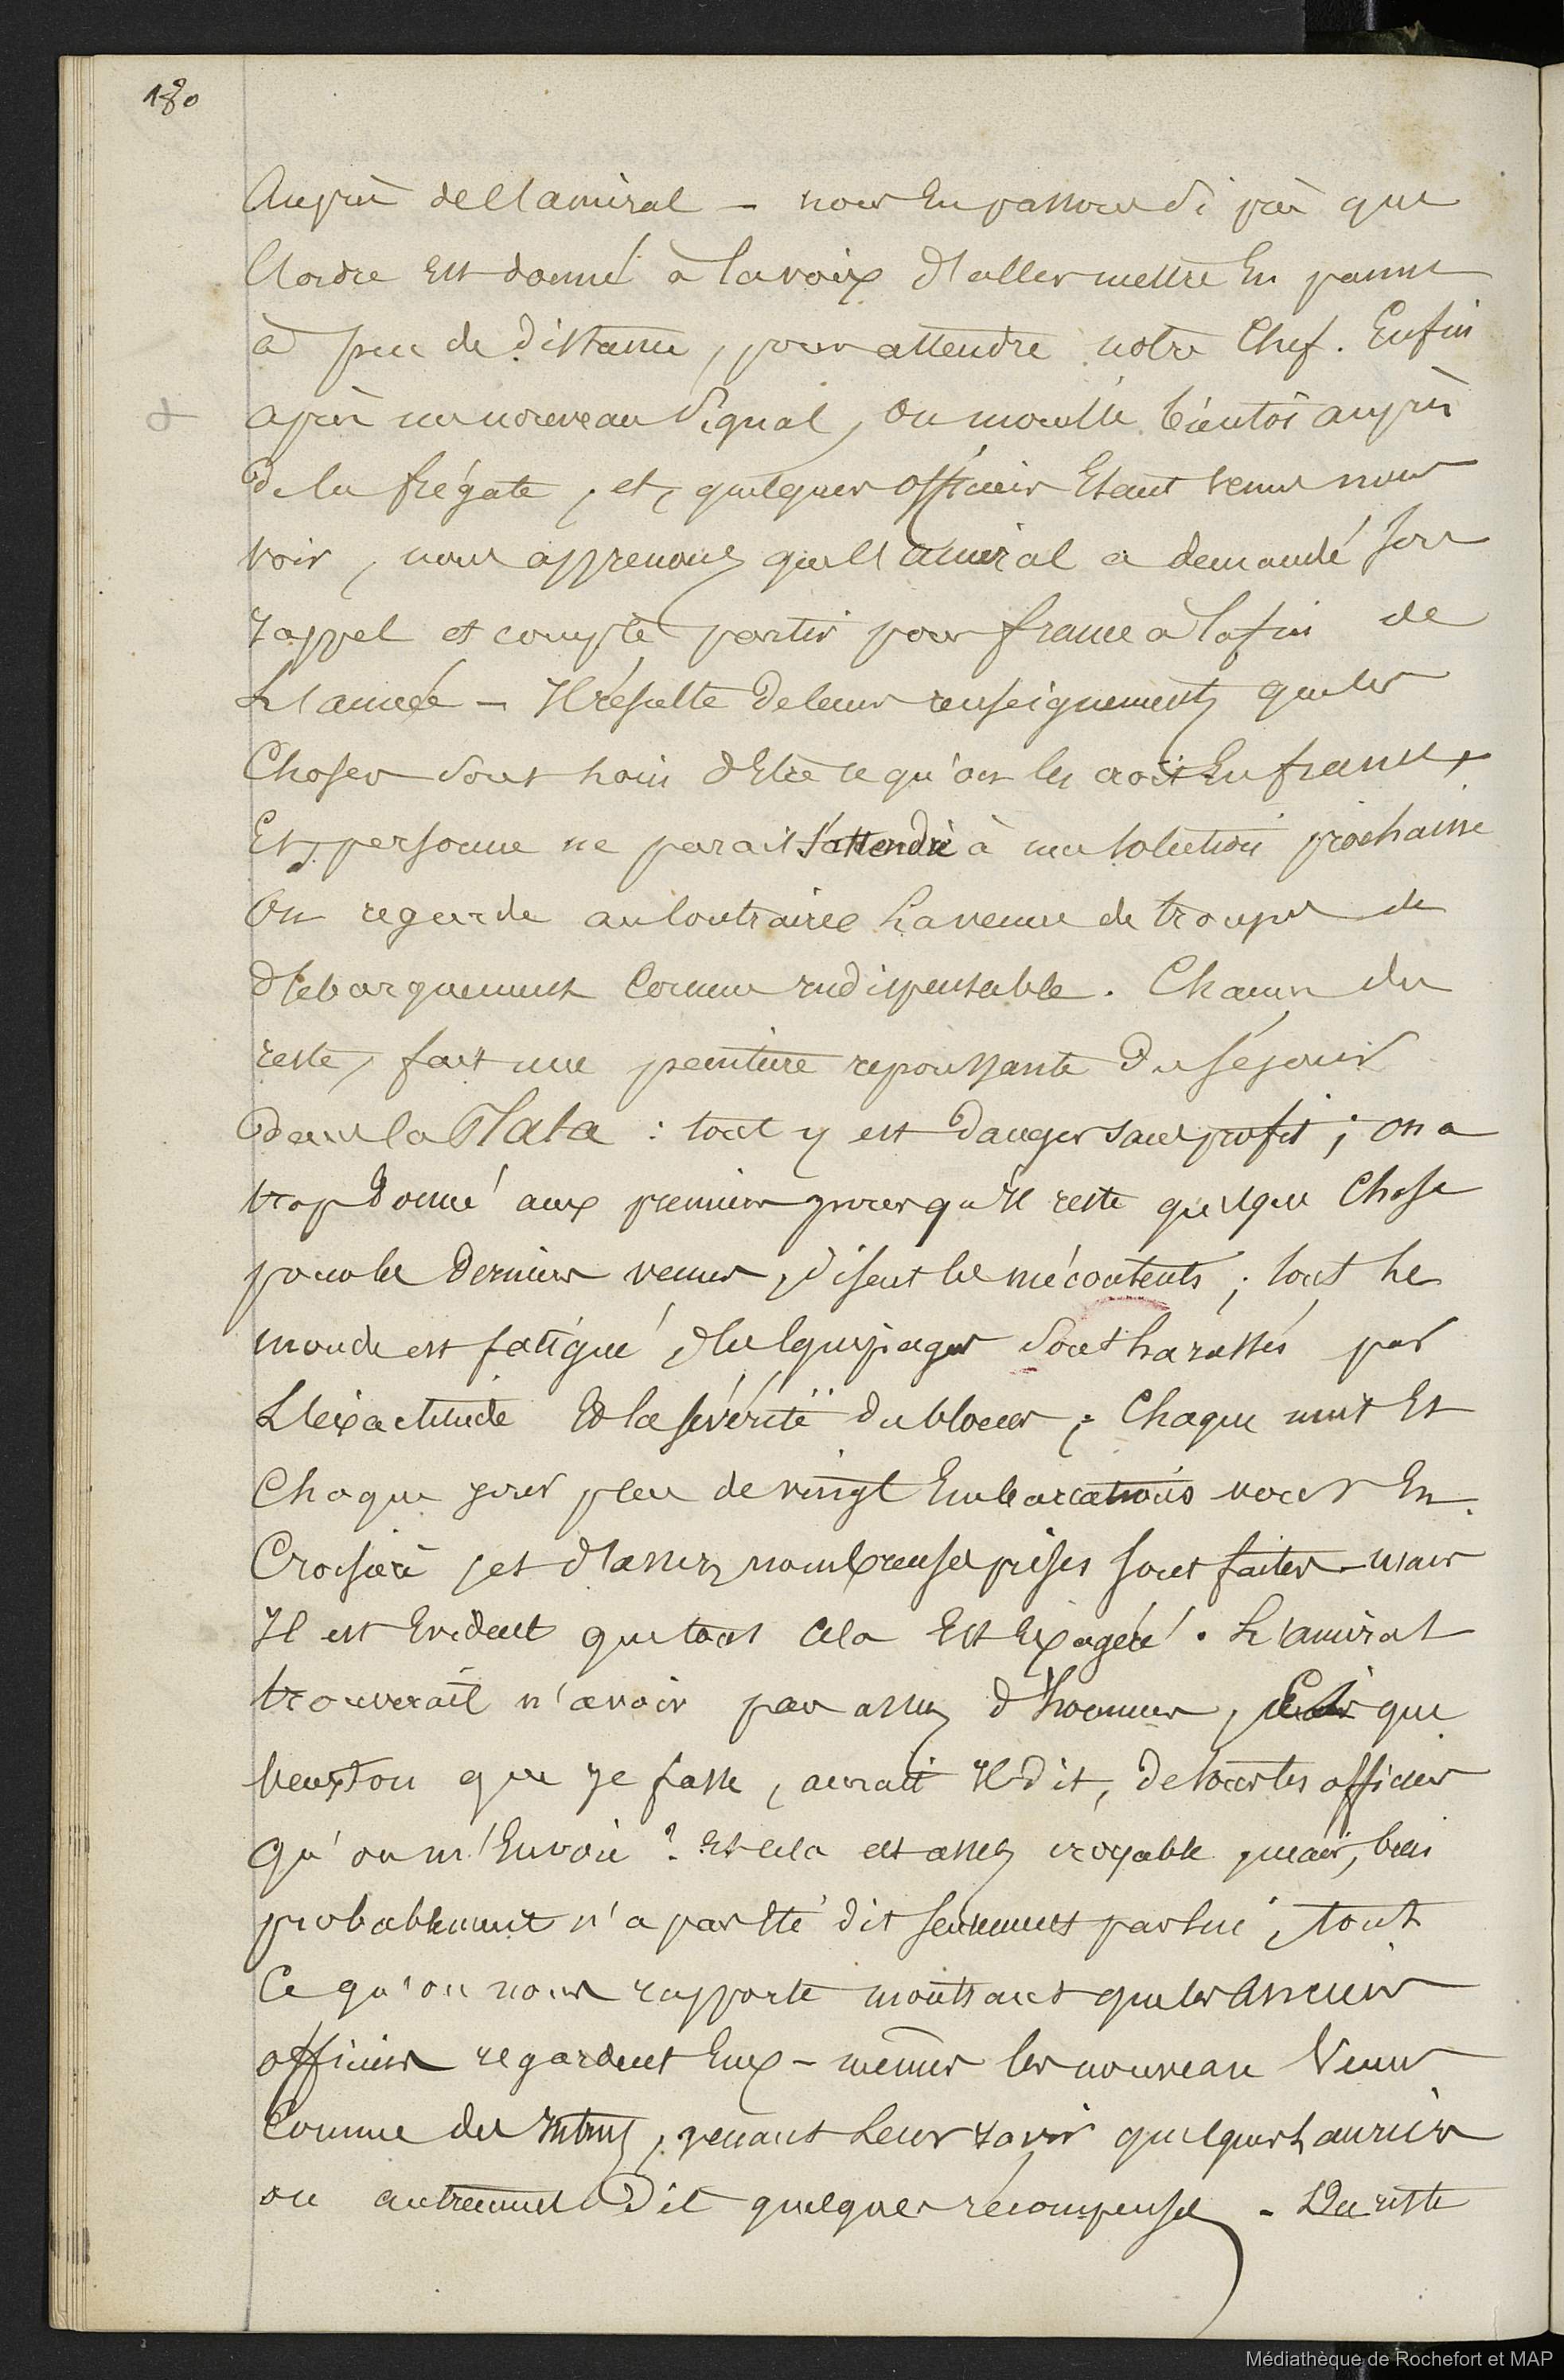 180
Auprès de l'amiral – nous en passons si près que
l'ordre est donné à la voix d'aller mettre en panne
à peu de distance, pour attendre notre Chef. Enfin
après un nouveau signal, on mouille bientôt auprès
de la frégate, et, quelques officiers étant venus nous
voir, nous apprenons que l'amiral a demandé son
rappel et compte partir pour france à la fin de
L'année – Il résulte de leurs renseignements que les
Choses sont loin d'Etre ce qu'on les croit En france,
Et, personne ne parait s'attendre à une solution prochaine
On regarde au Contraire La venue de troupes de
débarquement Comme indispensable. Chacun du
reste, fait une peinture repoussante du séjour
dans la Plata : tout y est danger sans profit ; on a
trop donné aux premiers pour qu'il reste quelque Chose
pour les derniers venus, disent les mécontents ; tout le
monde est fatigué, les équipages sont harassés par
L'exactitude Et la sévérité du blocus ; Chaque nuit Et
Chaque jour plus de vingt Embarcations vont En
Croisière, et d'assez nombreuses prises sont faites – mais
Il est Evident que tout cela Est Exagéré. L'amiral
trouverait n'avoir pas assez d'hommes, que
veut-on que je fasse, aurait Il dit, de tous les officiers
qu'on m'Envoie ? Et cela est assez croyable, mais, bien
probablement n'a pas été dit seulement par lui, tout
Ce qu'on nous rapporte montrant que les anciens
officiers regardent Eux-mêmes les nouveau Venus
Comme des Intrus, venant Leur ravir quelques Lauriers
ou autrement dit quelques récompenses. – Du reste
Médiathèque de Rochefort et MAP